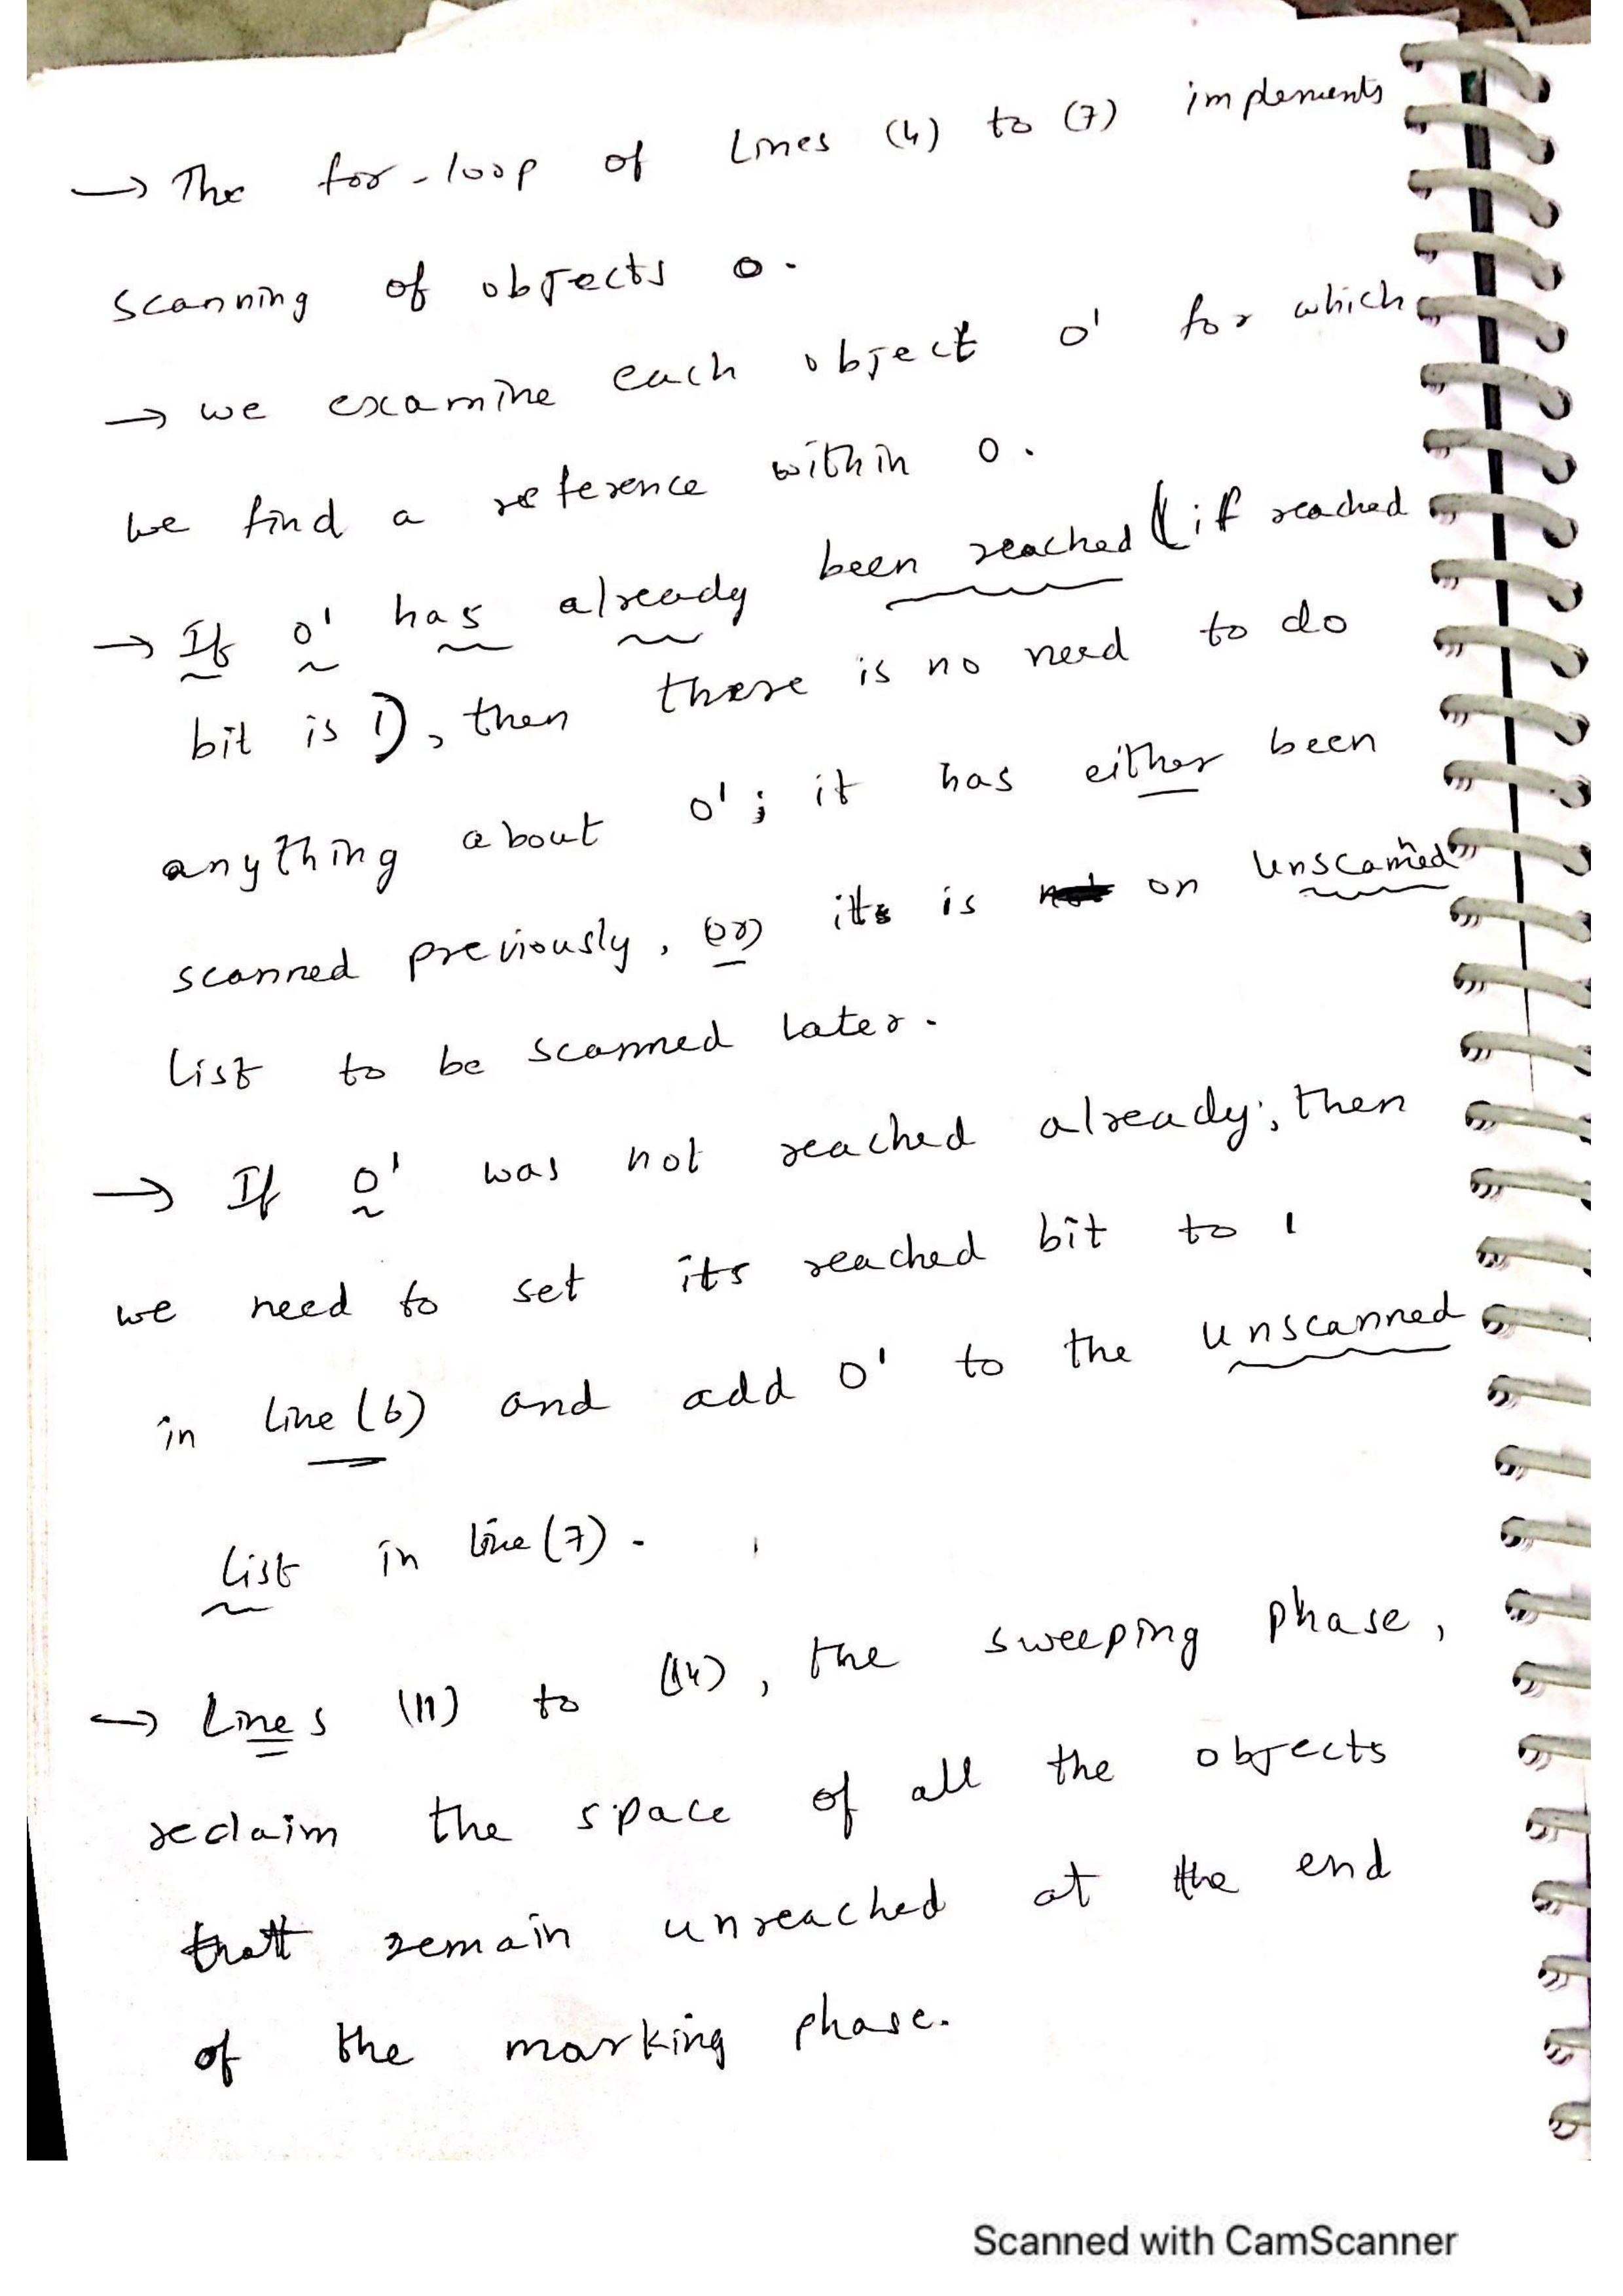 → The for-loop of Lines (4) to (7) implements
scanning of objects o.
→ we examine each object o' for which
we find a reference within o.
→ If o' has already been reached (if reached
bit is 1), then there is no need to do
anything about o'; it has either been
scanned previously, (or) its is not on Unscanned
List to be scanned later.
→ If o' was not reached already; then
we need to set its reached bit to 1
in Line (6) and add o' to the unscanned
List in line (7).
→ Lines (11) to (14), the sweeping phase,
reclaim the space of all the objects
that remain unreached at the end
of the marking phase.
Scanned with CamScanner